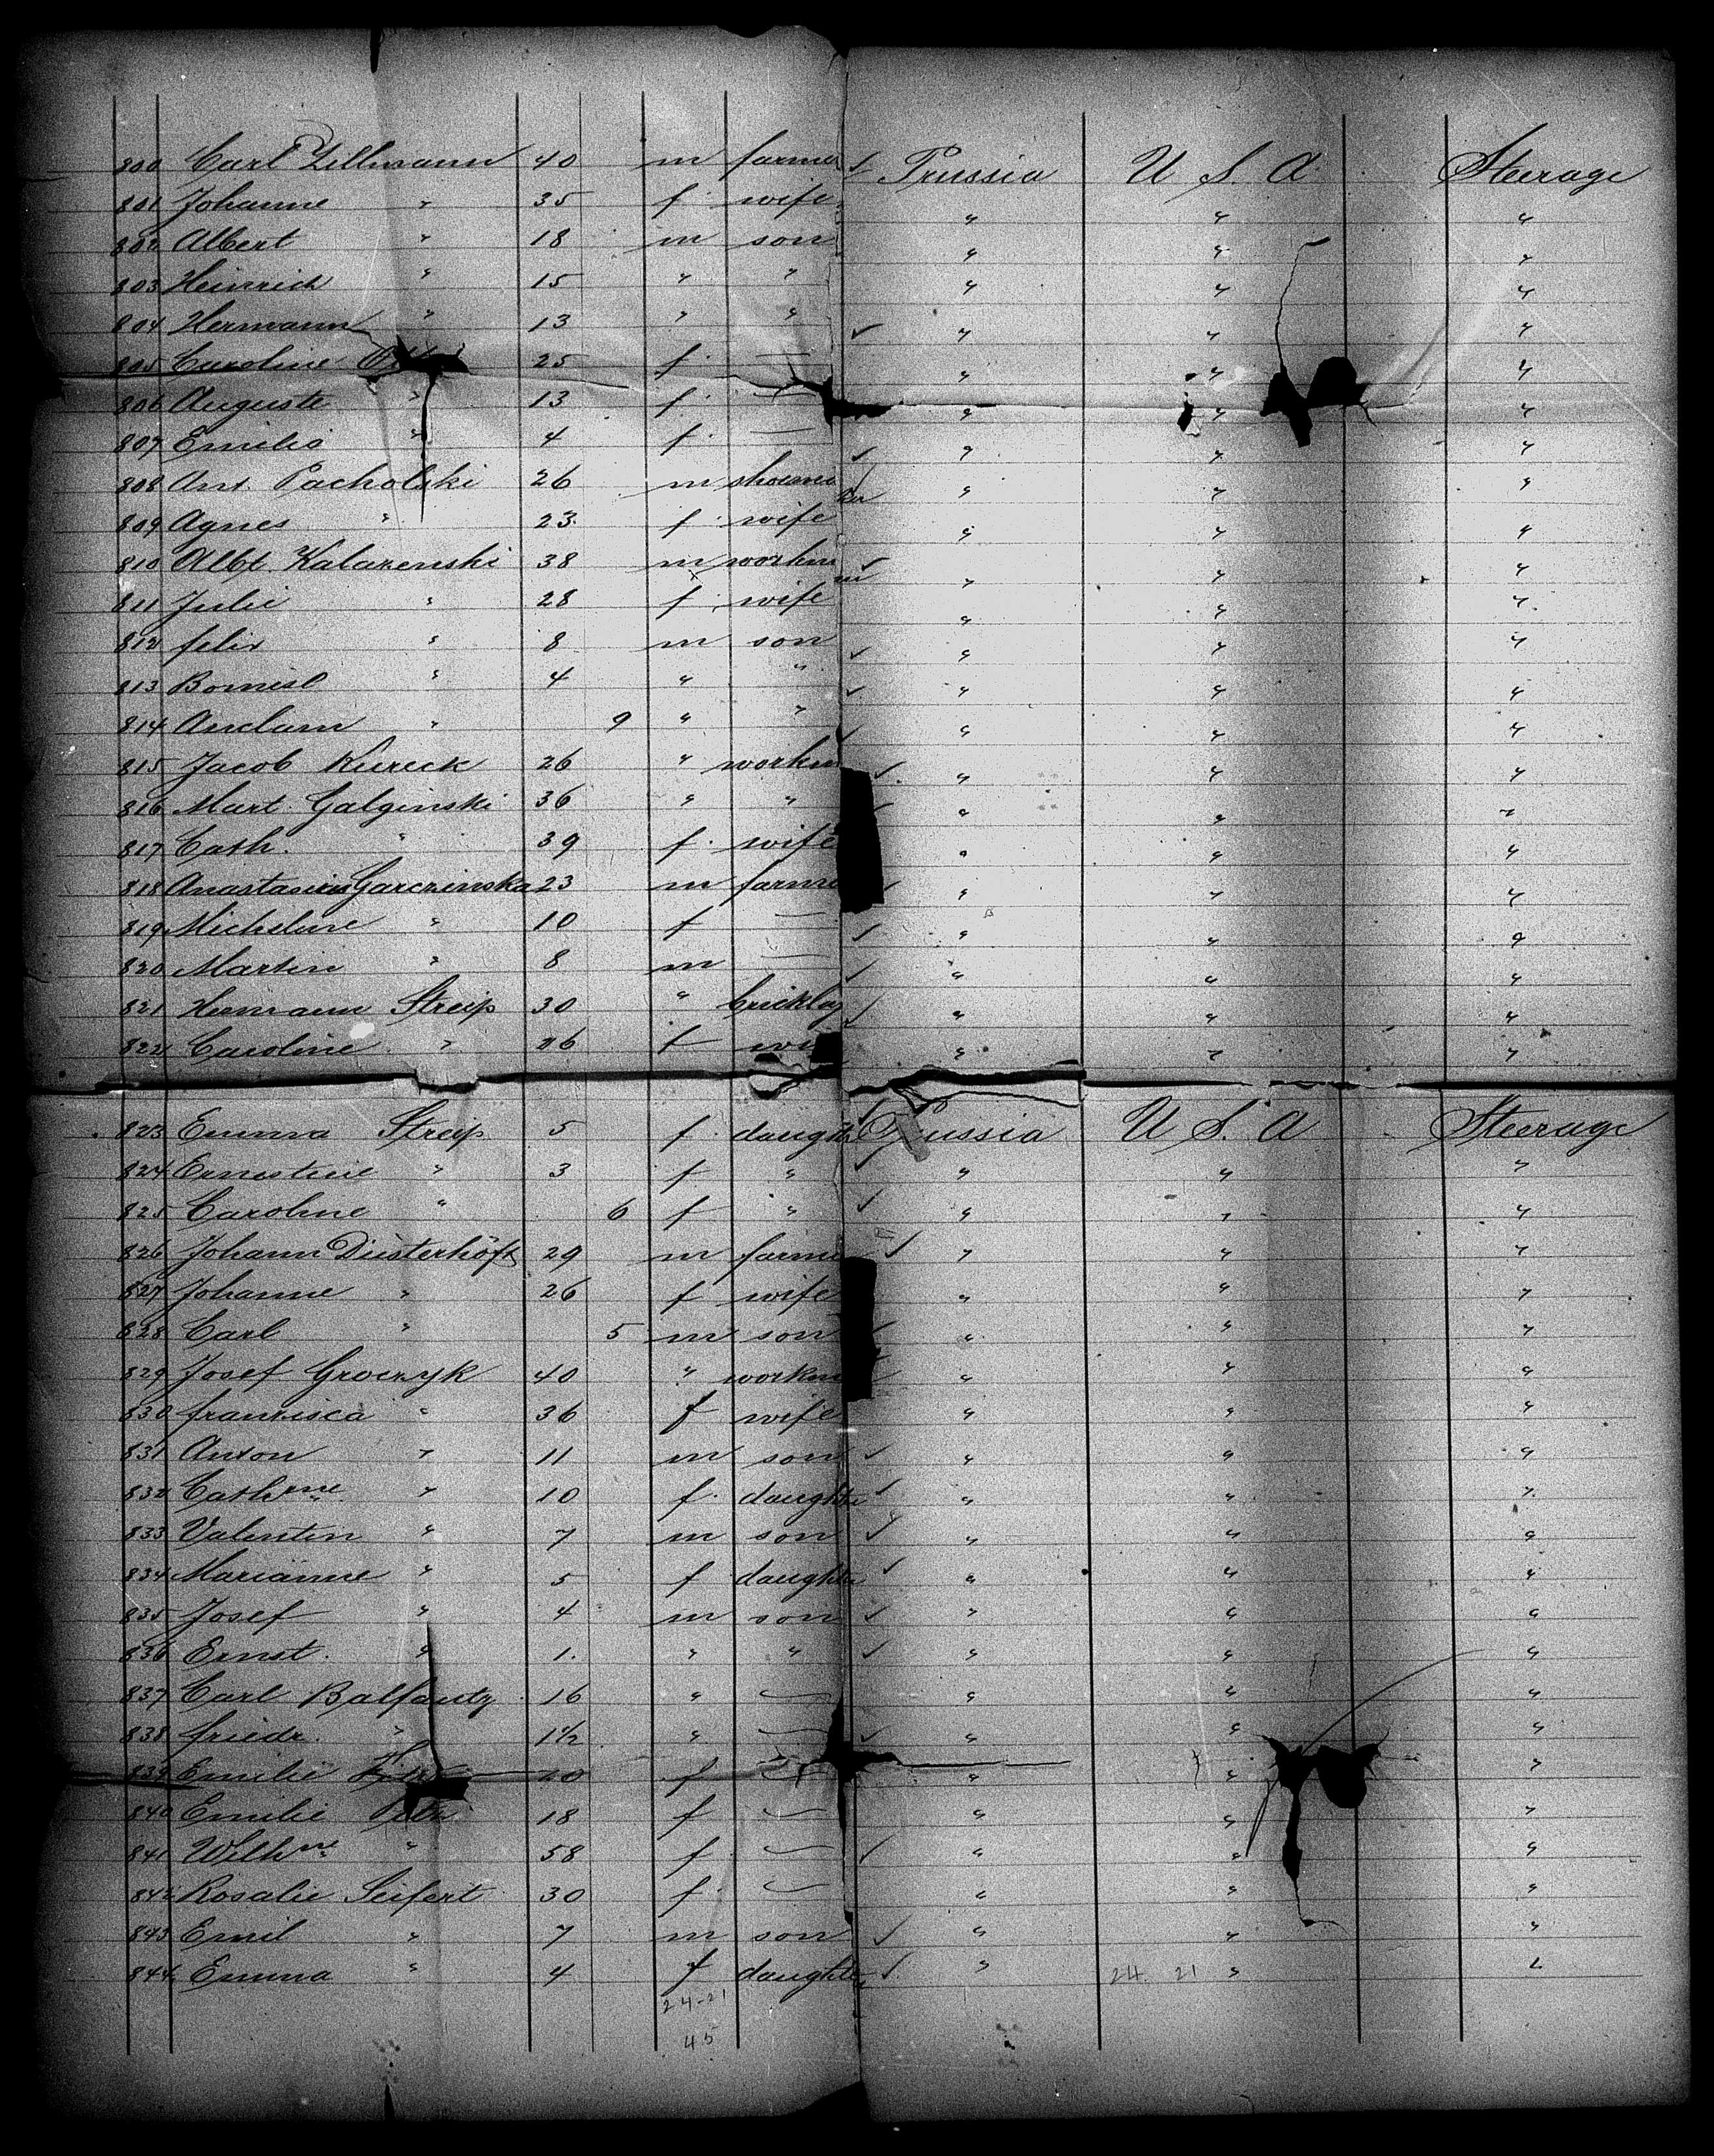 800 Carl Zellmann 40 m farmer Prussia U S. A. Steerage
801 Johanne " 35 f. wife " " "
802 Albert " 18 m son " " "
803 Heinrich " 15 " " " " "
804 Hermann " 13 " " " " "
805 Caroline 25 f. — " " "
806 Auguste " 13 f. — " " "
807 Emilie " 4 f. — " " "
808 Ant. Pacholski 26 m shoemaker " " "
809 Agnes " 23. f. wife " " "
810 Albt. Kalazenski 38 m workman " " "
811 Julie " 28 f. wife " " "
812 felix " 8 m son " " "
813 Bornisl " 4 " " " " "
814 Anclam " 9 " " " " "
815 Jacob Kureck 26 " workm " " "
816 Mart. Galginski 36 " " " " "
817 Cath. " 39 f. wife " " "
818 Anastasius Garczinska 23 m farme " " "
819 Micheline " 10 f — " " "
820 Martin " 8 m — " " "
821 Hermann Streip 30 " bricklay " " "
822 Caroline " 26 f wi " " "
823 Emma Streip 5 f. daught Prussia U S. A Steerage
824 Ernestine " 3 f " " " "
825 Caroline " 6 f " " " "
826 Johann Düsterhöft 29 m farme " " "
827 Johanne " 26 f wife " " "
828 Carl " 5 m son " " "
829 Josef Groczyk 40 " workm " " "
830 franzisca " 36 f wife " " "
831 Anton " 11 m son " " "
832 Cathrne " 10 f. daughter " " "
833 Valentin " 7 m son " " "
834 Marianne " 5 f daughter " " "
835 Josef " 4 m son " " "
836 Ernst. " 1. " " " " "
837 Carl Balfantz 16 " — " " "
838 friedr. " 1½ " — " " "
839 Emilie 20 f — " " "
840 Emilie 18 f — " " "
841 Wilhne " 58 f — " " "
842 Rosalie Seifert 30 f. — " " "
843 Emil " 7 m son " " "
844 Emma " 4 f daughter " 24. 21 " "
24-21
45